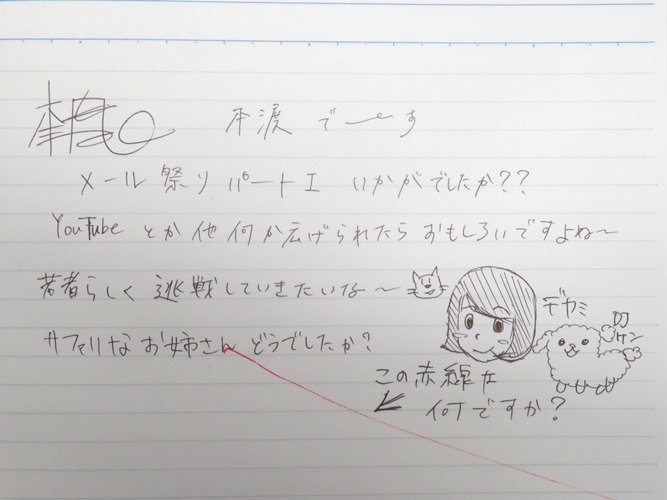 本渡でーす
メール祭り パートI いかがでしたか??
YouTube とか他何か広げられたらおもしろいですよね〜
若者らしく 逃戦していきたいな〜
サファリなお姉さん どうでしたか?
デカミ
DJ
この赤線は
何ですか?